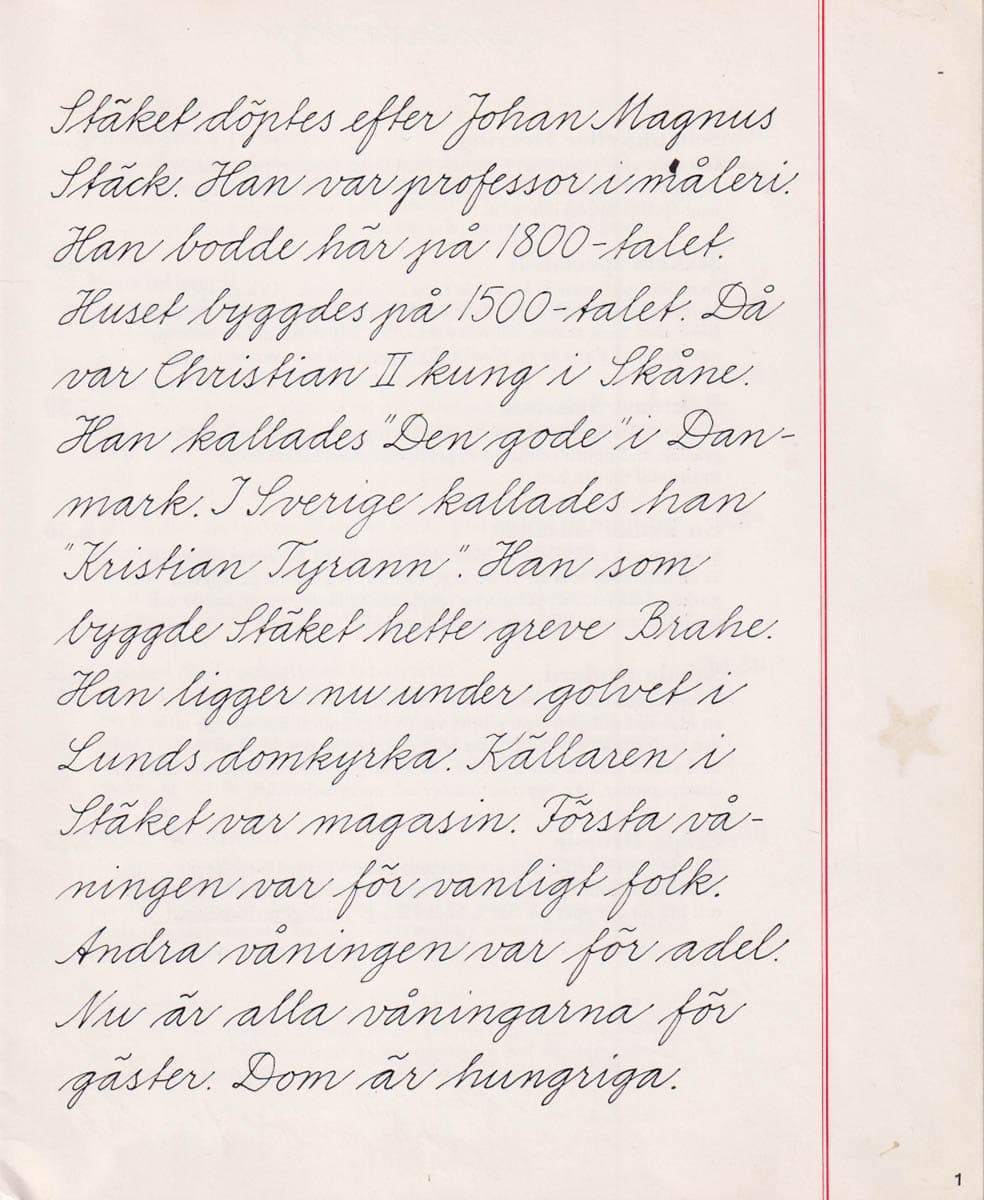 Stäket döptes efter Johan Magnus
Stäck. Han var professor i måleri.
Han bodde här på 1800-talet.
Huset byggdes på 1500-talet. Då
var Christian II kung i Skåne.
Han kallades "Den gode" i Dan-
mark. I Sverige kallades han
"Kristian Tyrann". Han som
byggde Stäket hette greve Brahe.
Han ligger nu under golvet i
Lunds domkyrka. Källaren i
Stäket var magasin. Första vå-
ningen var för vanligt folk.
Andra våningen var för adel.
Nu är alla våningarna för
gäster. Dom är hungriga.
1